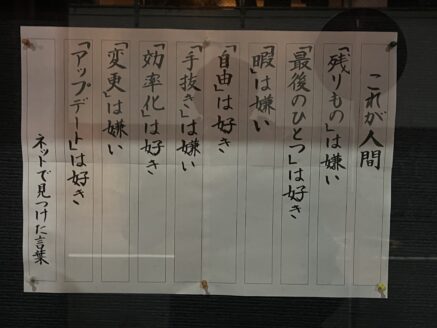 これが人間
「残りもの」は嫌い
「最後のひとつ」は好き
「暇」は嫌い
「自由」は好き
「手抜き」は嫌い
「効率化」は好き
「変更」は嫌い
「アップデート」は好き
ネットで見つけた言葉